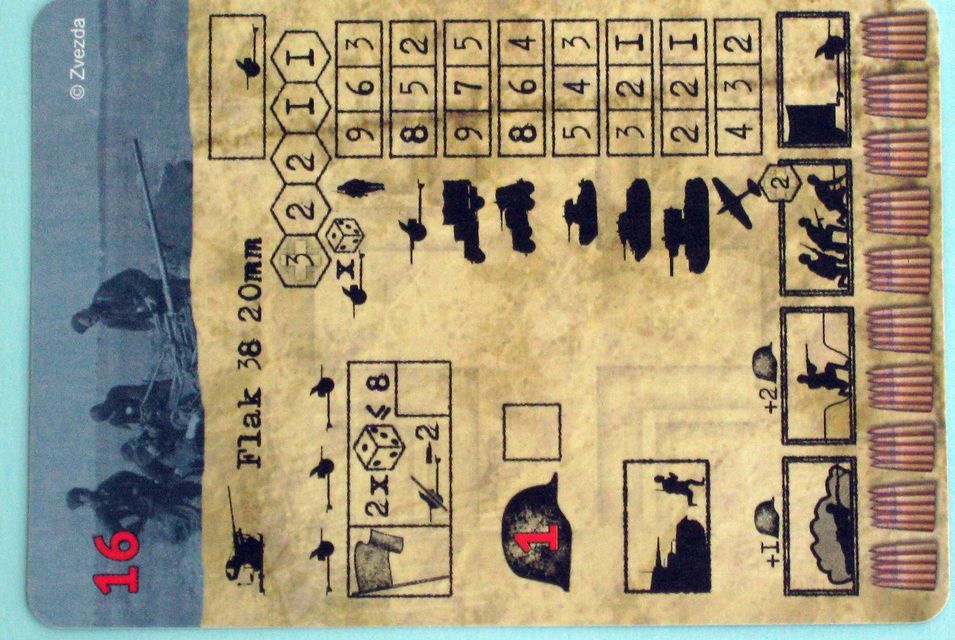 © Zvezda
16
Flak 38 20mm
3 2 2 1 1
x
9 6 3
2x ≤ 8
8 5 2
-2
9 7 5
8 6 4
1
5 4 3
3 2 1
2 2 1
4 3 2
+1 +2 2